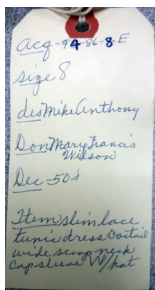 acq-94-86-8-E
size 8
des Mike Anthony
Don Mary Francis
Wilson
Dec-50's
Item slim lace
tunic dress
wide scoop neck
cap sleeve W/hat